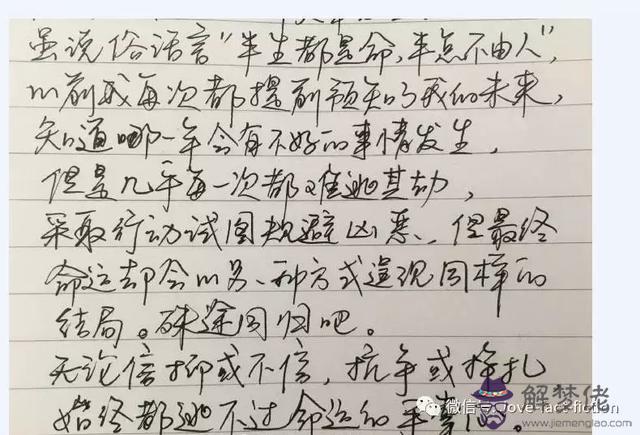 虽说俗话言“半生都是命,半点不由人”,
以前我每次都提前预知了我的未来,
知道哪一年会有不好的事情发生,
但是几乎每一次都难逃其劫,
采取行动试图规避凶恶、但最终
命运却会以另一种方式呈现同样的
结局。殊途同归吧。
无论信抑或不信,抗争或挣扎
始终都逃不过命运的
微信号:love-fact-fiction
解梦佬
www.jiemenglao.com